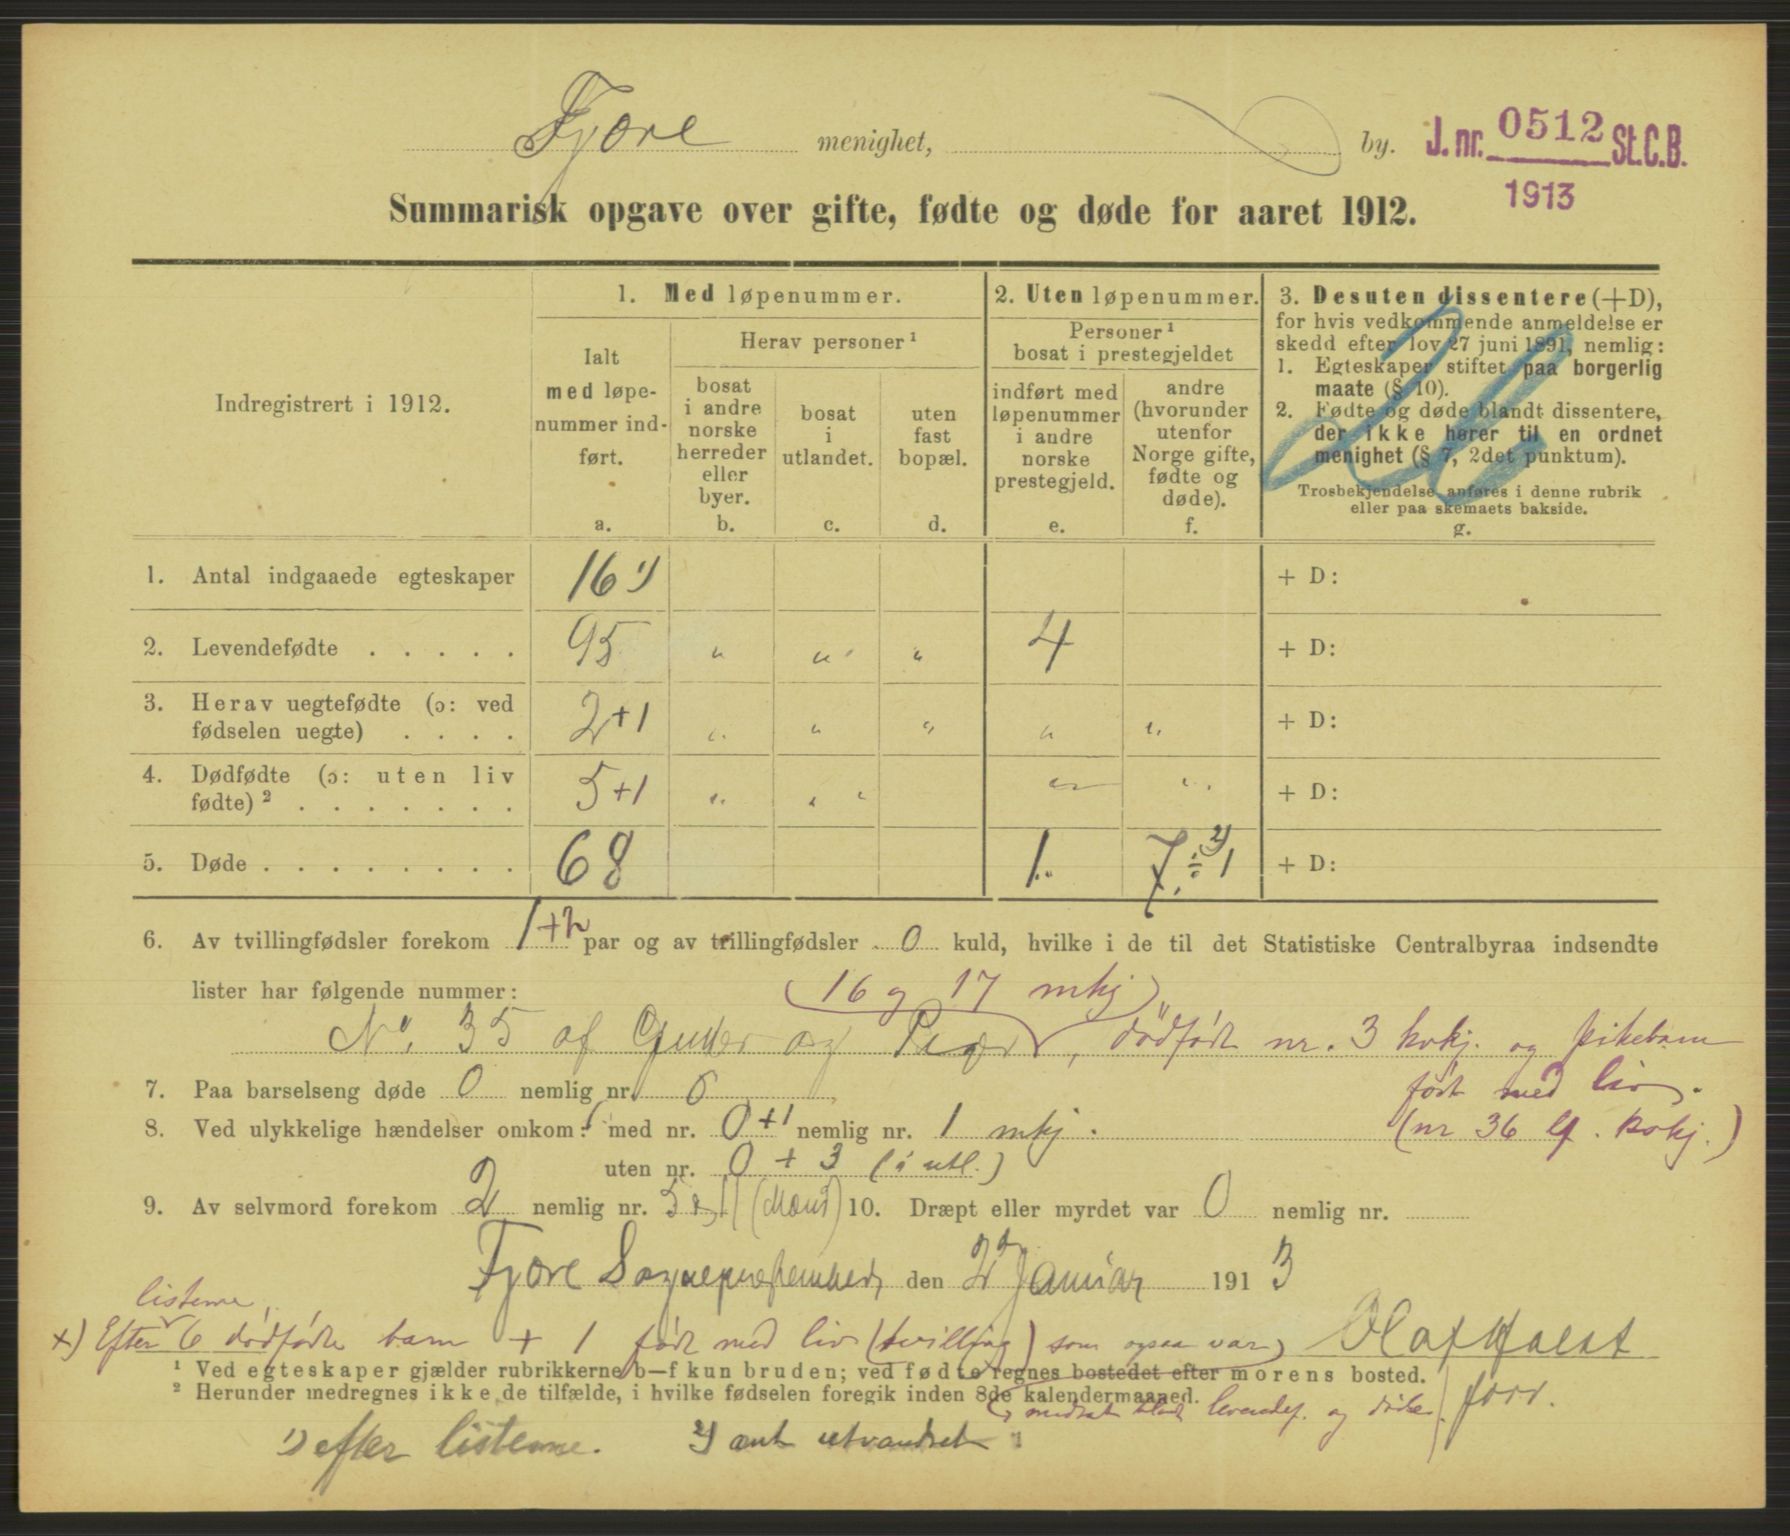 Fjære menighet, by. J. nr. 0512 St. C. B.
1913
Summarisk opgave over gifte, fødte og døde for aaret 1912.
Indregistrert i 1912.
1. Med løpenummer.
Ialt
med løpe-
nummer ind-
ført.
a.
Herav personer ¹
bosat
i andre
norske
herreder
eller
byer.
b.
bosat
i
utlandet.
c.
uten
fast
bopæl.
d.
2. Uten løpenummer.
Personer ¹
bosat i prestegjeldet
indført med
løpenummer
i andre
norske
prestegjeld.
e.
andre
(hvorunder
utenfor
Norge gifte,
fødte og
døde).
f.
3. Desuten dissentere (+D),
for hvis vedkommende anmeldelse er
skedd efter lov 27 juni 1891, nemlig:
1. Egteskaper stiftet paa borgerlig
maate (§ 10).
2. Fødte og døde blandt dissentere,
der ikke hører til en ordnet
menighet (§ 7, 2det punktum).
Trosbekjendelse anføres i denne rubrik
eller paa skemaets bakside.
g.
1. Antal indgaaede egteskaper 16 ¹) + D:
2. Levendefødte . . . . . 95 " " " 4 + D:
3. Herav uegtefødte (ɔ: ved
fødselen uegte) . . . . 2+1 " " " " " + D:
4. Dødfødte (ɔ: uten liv
fødte) ² . . . . . . . 5+1 " " " " " + D:
5. Døde . . . . . . . . 68 1 7 ÷ 1 ²) + D:
6. Av tvillingfødsler forekom 1+2 par og av trillingfødsler 0 kuld, hvilke i de til det Statistiske Centralbyraa indsendte
lister har følgende nummer: (16 og 17 mkj)
No. 35 af Gutter og Piger, dödfödt nr. 3 kvkj. og pikebarn
födt med liv.
(nr 36 lf. kvkj.)
7. Paa barselseng døde 0 nemlig nr. 0
8. Ved ulykkelige hændelser omkom: med nr. 0 +1 nemlig nr. 1 mkj.
uten nr. 0 + 3 (i utl.)
9. Av selvmord forekom 2 nemlig nr. 5 & 11 (Mænd) 10. Dræpt eller myrdet var 0 nemlig nr.
Fjære Sogneprestembed, den 2 Januar 1913
listerne
×) Efter 6 dödfödte barn + 1 födt med liv (tvilling) som ogsaa var Olaf Holst
¹ Ved egteskaper gjælder rubrikkerne b—f kun bruden; ved fødte regnes bostedet efter morens bosted.
² Herunder medregnes ikke de tilfælde, i hvilke fødselen foregik inden 8de kalendermaaned.
medtat blandt levendef. og döde. forr.
¹) efter listerne. ²) ant utvandret